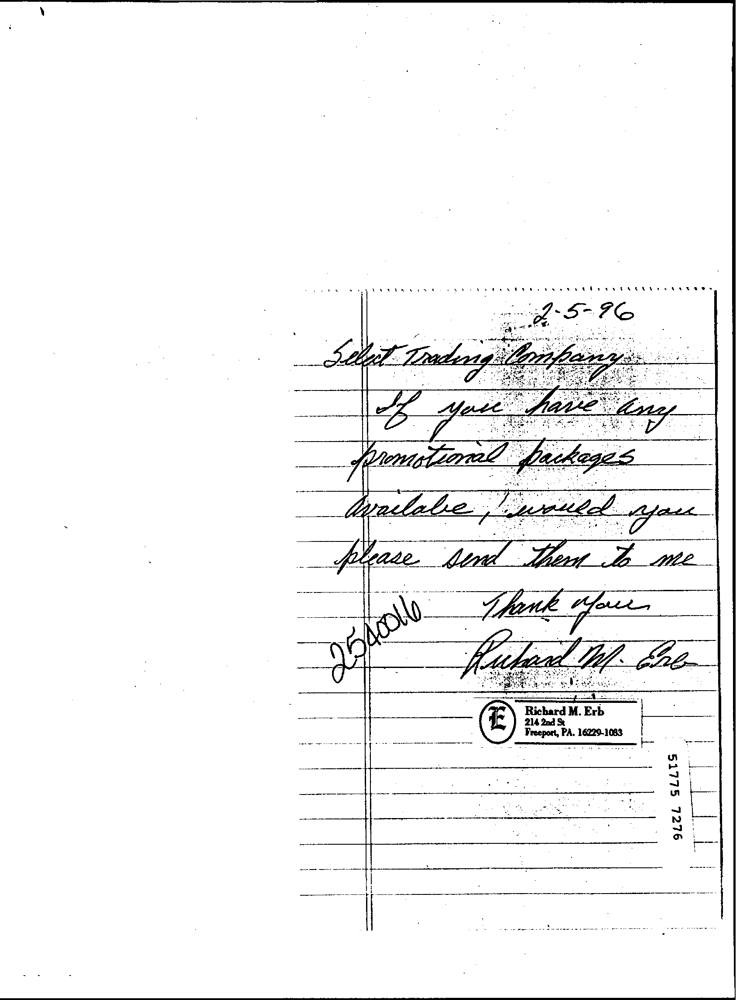 2-5-96
Select Trading Company
If you have any
promotional packages
availabe, would you
please send them to me
Thank you
2540016
Richard M. Erb
E
Richard M. Erb
214 2nd St
Freeport, PA. 16229-1083
51775 7276